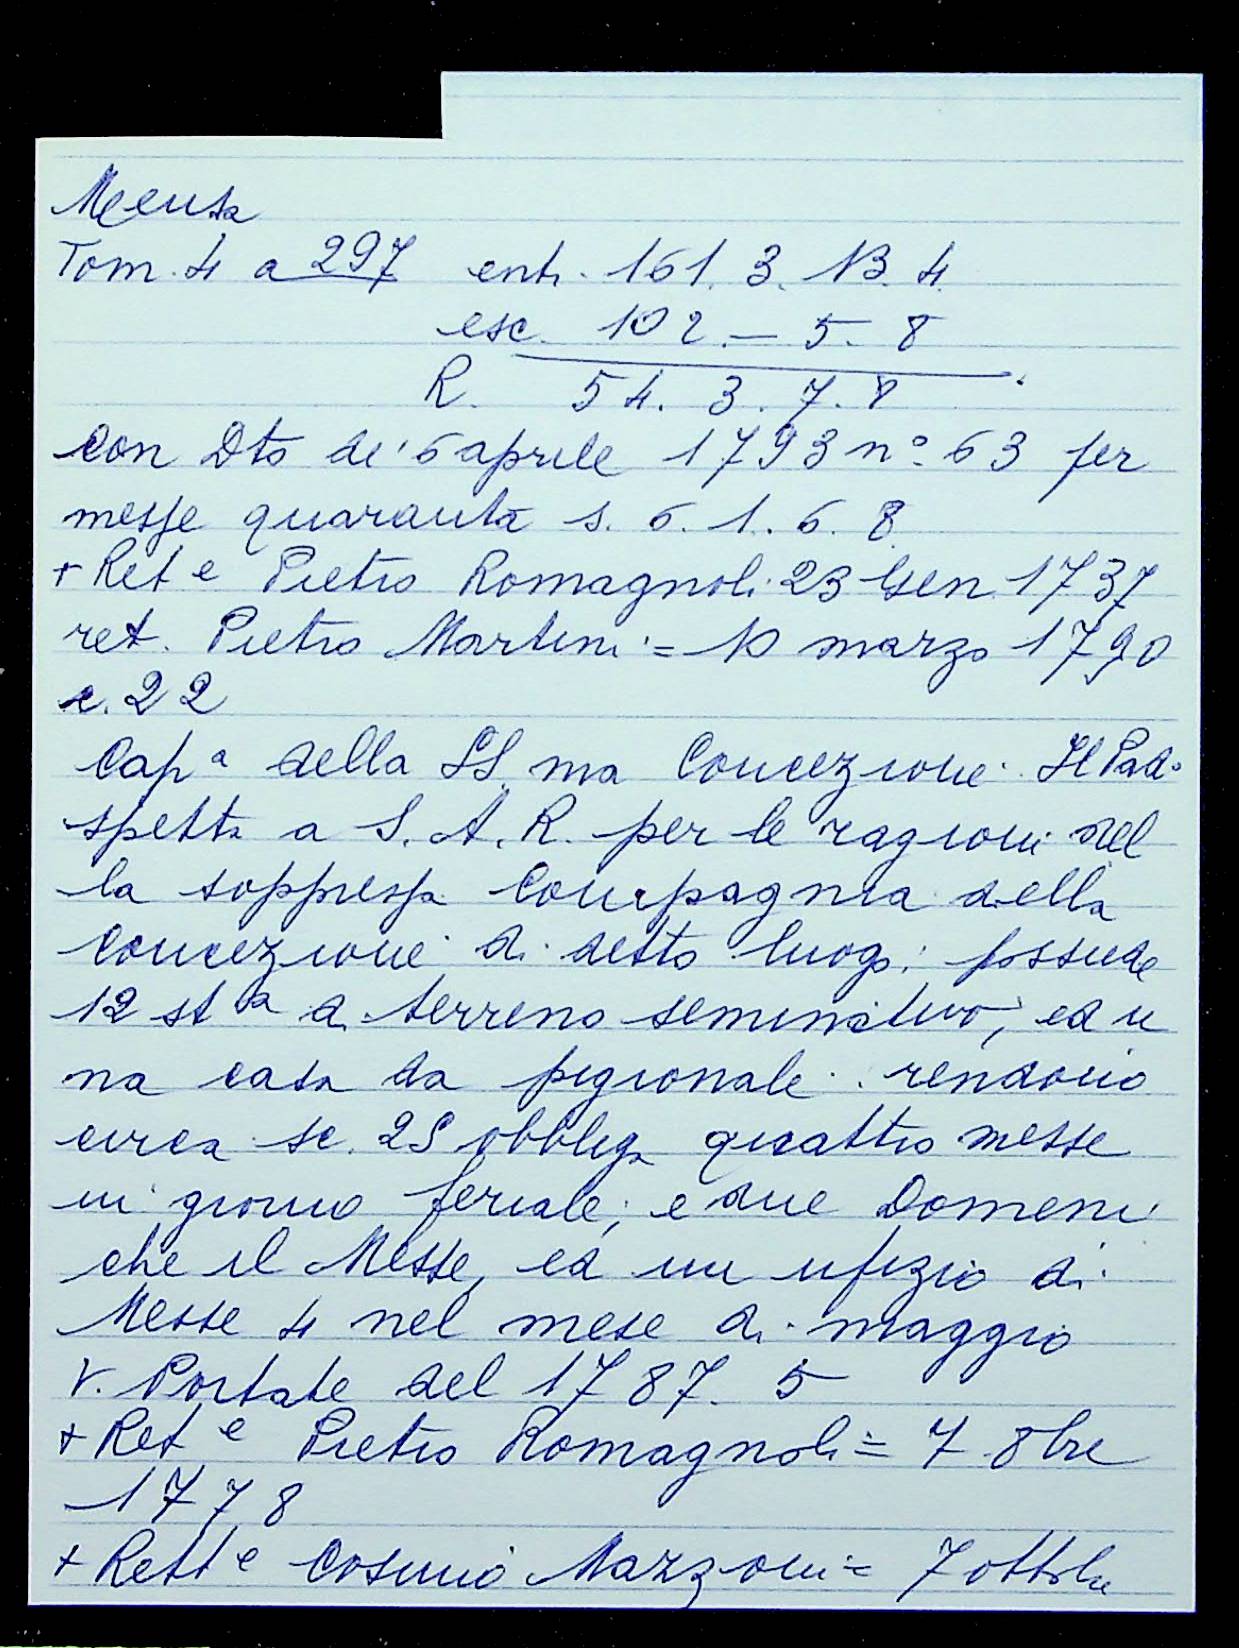 Mensa
Tom. 4 a 297 entr. 161. 3. 13. 4.
esc. 102.— 5. 8
R. 54. 3. 7. 8
con Dto de' 6 aprile 1793 n° 63 per
messe quaranta s. 6. 1. 6. 8
+ Ret e Pietro Romagnoli 23 Gen. 1737
ret. Pietro Martini = 10 marzo 1790
c. 22
Cap a della SS. ma Concezione. Il Pad.
spetta a S. A. R. per le ragioni del
la soppressa Compagnia della
Concezione di detto luogo: possiede
12 st a di terreno seminativo, ed u
na casa da pigionale: rendono
circa sc. 25 obbligo quattro messe
in giorno feriale; e due Domeni
che il Messe, ed un ufizio di
Messe 4 nel mese di maggio
V. Portate del 1787. 5
+ Ret e Pietro Romagnoli = 7 8bre
1778
+ Rett e Cosimo Mazzoni = 7 ottobre